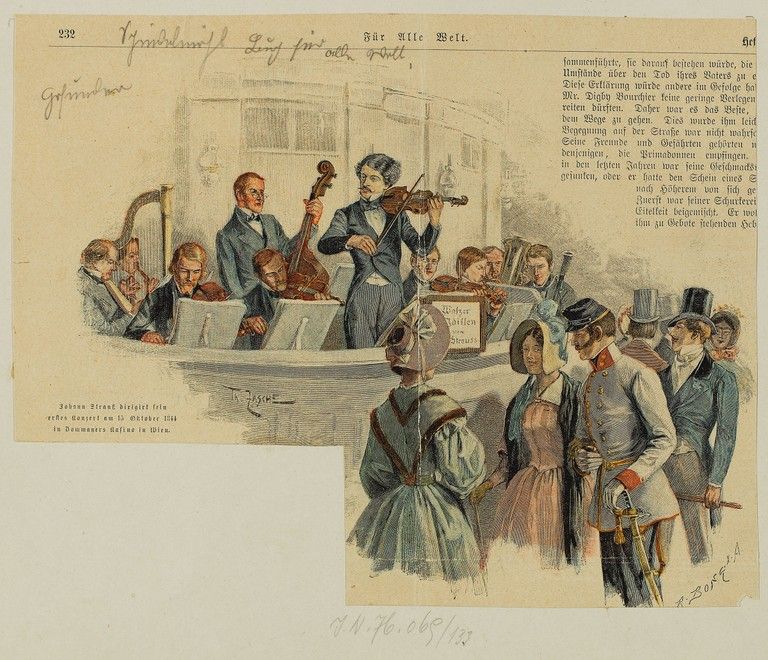 232
Für Alle Welt.
Hef
Buch für alle Welt,
sammenführte, sie darauf bestehen würde, die
Umstände über den Tod ihres Vaters zu e
Diese Erklärung würde andere im Gefolge ha
Mr. Digby Bourchier keine geringe Verlegen
reiten dürften. Daher war es das Beste,
dem Wege zu gehen. Dies wurde ihm leich
Begegnung auf der Straße war nicht wahrsc
Seine Freunde und Gefährten gehörten n
denjenigen, die Primadonnen empfingen.
in den letzten Jahren war seine Geschmacks
gesunken, oder er hatte den Schein eines S
nach Höherem von sich ge
Zuerst war seiner Schurkerei
Eitelkeit beigemischt. Er wo
ihm zu Gebote stehenden Heb
Walzer
von
Strauss
Th. Zasche
Johann Strauß dirigirt sein
erstes Konzert am 15 Oktober 1844
in Dommayers Kasino in Wien.
R. BONG X.A
I.N. 76.069/133